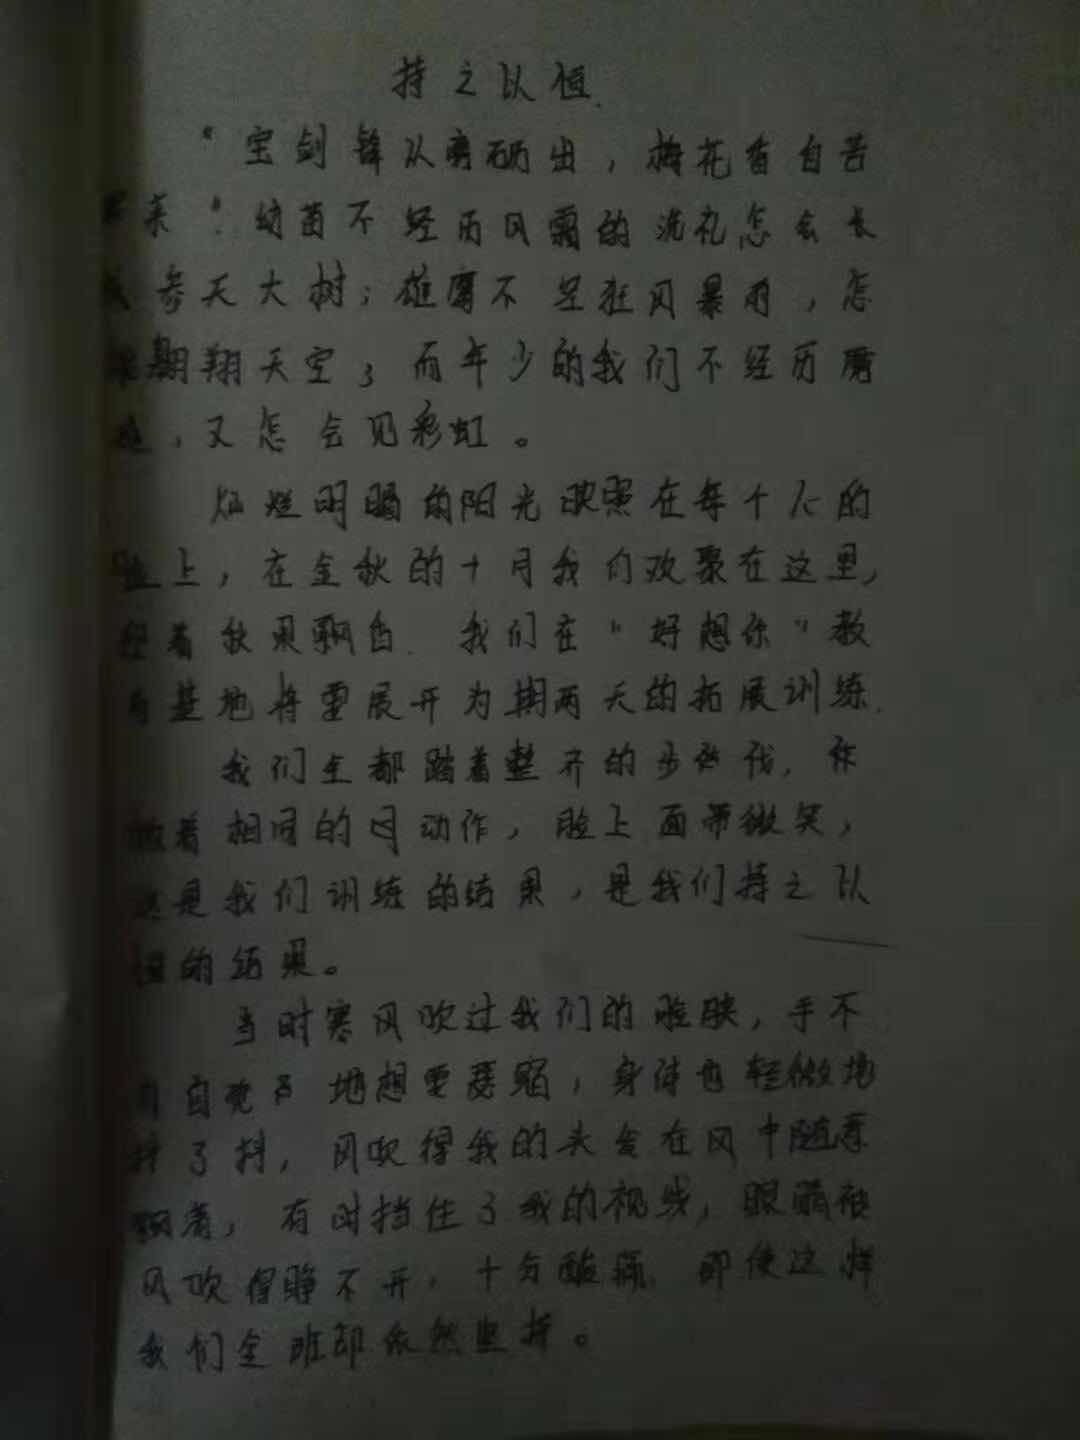 持之以恒.
“宝剑锋从磨砺出，梅花香自苦
寒来”.幼苗不经历风霜的洗礼怎会长
成参天大树；雄鹰不经狂风暴雨，怎
翱翔天空；而年少的我们不经历磨
，又怎会见彩虹。
灿烂明媚的阳光映照在每个人的
脸上，在金秋的十月我们欢聚在这里,
着秋果飘香.我们在“好想你”教
育基地将要展开为期两天的拓展训练.
我们全都踏着整齐的步伐,
做着相同的动作，脸上面带微笑，
这是我们训练的结果，是我们持之以
恒的结果。
当时寒风吹过我们的脸颊，手不
自觉地想要蜷缩，身体也轻微地
抖了抖，风吹得我的头发在风中随意
飘着，有时挡住了我的视线，眼睛被
风吹得睁不开，十分酸痛.即使这样
我们全班却依然坚持。